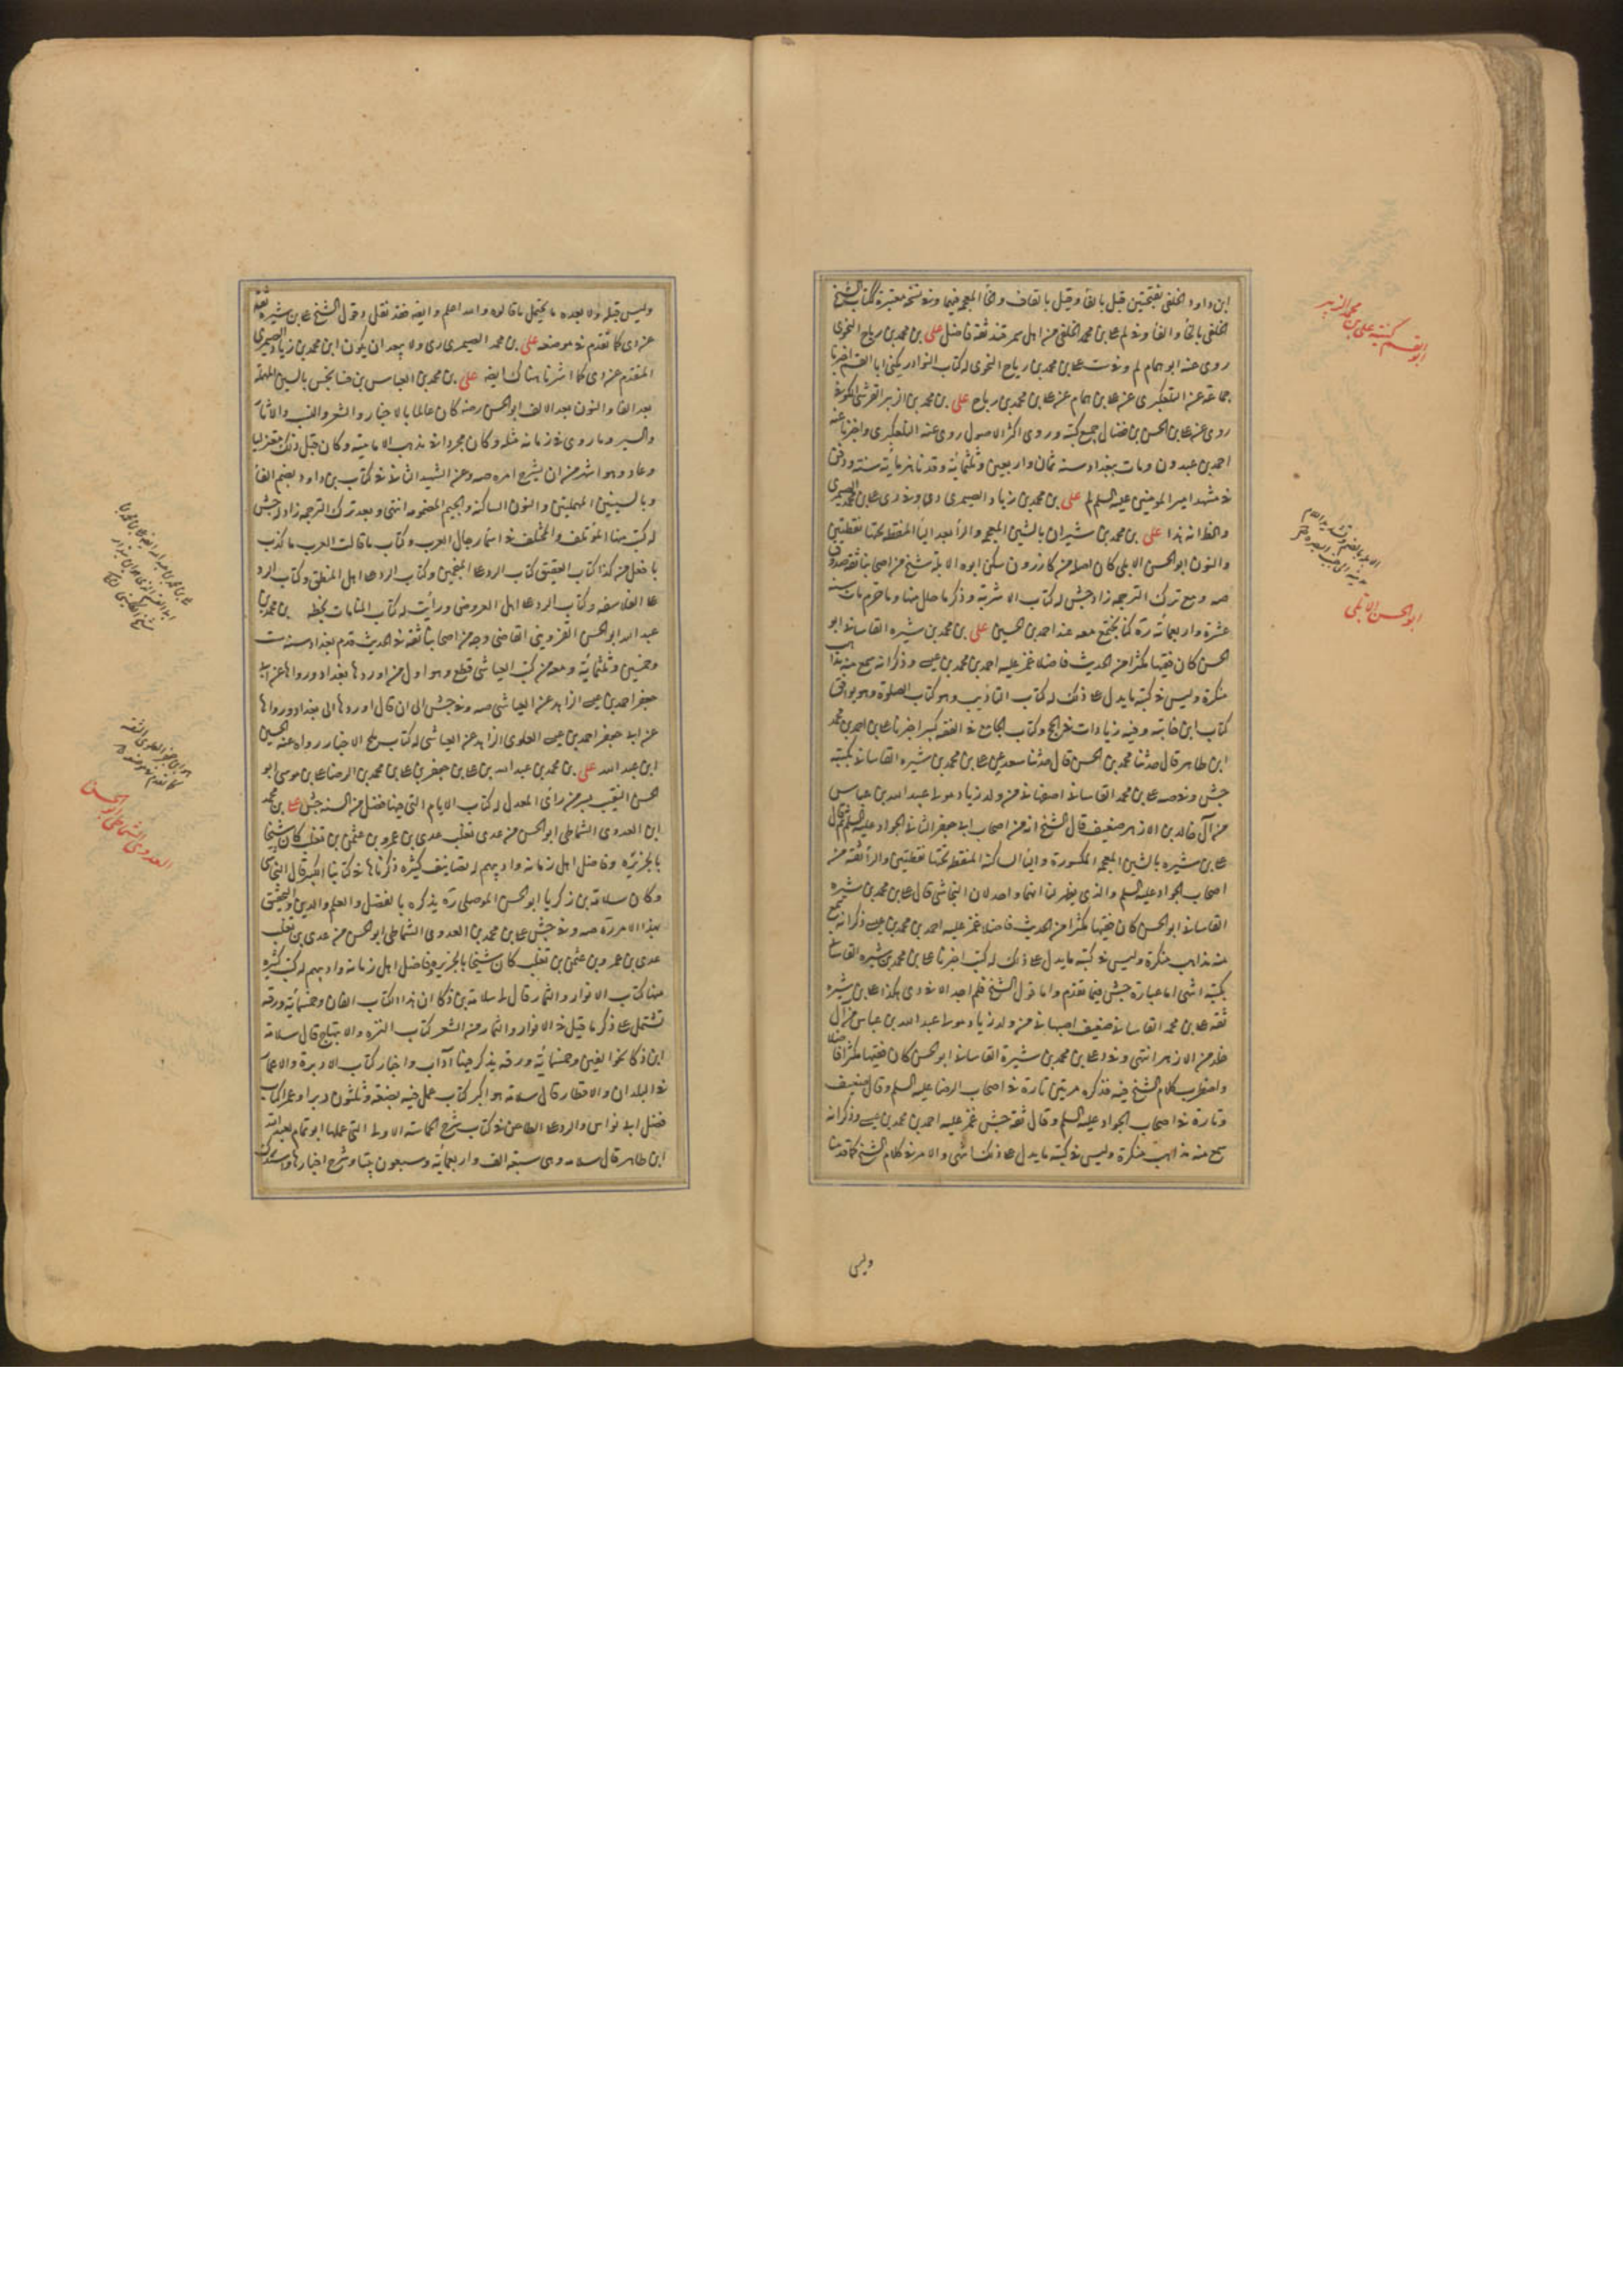 ابن داود الخلقي بفتحتين قيل بالفا وقيل بالقاف والخا المعجمة فيهما وفي نسخة معتبرة لكتاب الشيخ
الخلقي بالخا والفا وفي لم علي بن محمد الخلقي من اهل سمرقند ثقة فاضل علي بن محمد بن رياح النحوي
روى عنه ابو همام لم وفي ست علي بن محمد بن رياح النحوي له كتاب النوادر يكنى ابا القسم اخبرنا
جماعة عن التلعكبرى عن علي بن همام عن علي بن محمد بن رياح علي بن محمد بن الزبير القرشي الكوفي
روى عن علي بن الحسن بن فضال جميع كتبه وروى اكثر الاصول روى عنه التلعكبرى واخبرنا عنه
احمد بن عبدون ومات ببغداد سنة ثمان واربعين وثلثمائة وقد ناهز مائة سنة ودفن
في مشهد امير المومنين عليه السلم لم علي بن محمد بن زياد الصيمرى دي وفي ري علي بن محمد الصيمرى
والظ انه هذا علي بن محمد بن شيران بالشين المعجمة والراء بعد الياء المنقطة تحتها نقطتين
والنون ابو الحسن الابلي كان اصله من كازرون سكن ابوه الابلة شيخ من اصحابنا ثقة صدوق
صه ومع ترك الترجمة زاد جش له كتاب الاشربة وذكر ما حلل منها وما حرم مات سنة
عشرة واربعمائة ره كنا نجتمع معه عند احمد بن الحسين علي بن محمد بن شيره القاساني ابو
الحسن كان فقيها مكثرا من الحديث فاضلا غمز عليه احمد بن محمد بن عيسى وذكر انه سمع منه مذاهب
منكرة وليس في كتبه ما يدل على ذلك له كتاب التاديب وهو كتاب الصلوة وهو يوافق
كتاب ابن خانبه وفيه زيادات في الحج وكتاب الجامع في الفقه كبير اخبرنا علي بن احمد بن محمد
ابن طاهر قال حدثنا محمد بن الحسن قال حدثنا سعد عن علي بن محمد بن شيره القاساني بكتبه
جش وفي صه علي بن محمد القاساني اصفهاني من ولد زياد مولى عبد الله بن عباس
من آل خالد بن الازهر ضعيف قال الشيخ انه من اصحاب ابي جعفر الثاني الجواد عليه السلم ثم قال
علي بن شيره بالشين المعجمة المكسورة والياء الساكنة المنقطة تحتها نقطتين والراء ثقة من
اصحاب الجواد عليه السلم والذى يظهر لنا انهما واحد لان النجاشي قال علي بن محمد بن شيره
القاساني ابو الحسن كان فقيها مكثرا من الحديث فاضلا غمز عليه احمد بن محمد بن عيسى ذكر انه سمع
منه مذاهب منكرة وليس في كتبه ما يدل على ذلك له كتب اخبرنا علي بن محمد بن شيره القاساني
بكتبه انتهى اما عبارة جش فيما تقدم واما قول الشيخ فلم اجد الا في دي هكذا علي بن شيره
ثقة علي بن محمد القاساني ضعيف اصبهاني من ولد زياد مولى عبد الله بن عباس من آل
خلد من الازهر انتهى وفي د علي بن محمد بن شيرة القاساني ابو الحسن كان فقيها مكثرا فاضلا
واضطرب كلام الشيخ فيه فذكره مرتين تارة في اصحاب الرضا عليه السلم وقال ضعيف
وتارة في اصحاب الجواد عليه السلم وقال ثقة جش غمز عليه احمد بن محمد بن عيسى وذكر انه
سمع منه مذاهب منكرة وليس في كتبه ما يدل على ذلك انتهى والامر في كلام الشيخ كما قدمنا
وليس
ابو القسم كنية علي بن محمد الزبير
ابو الحسن الابلي
وليس قبله ولا بعده ما يحتمل ما قالوه والله اعلم وايضا فقد نقل د قول الشيخ علي بن شيره ثقة
عن دي كما تقدم في موضعه علي بن محمد الصيمرى ري ولا يبعد ان يكون ابن محمد بن زياد الصيمرى
المتقدم عن دي كما اشرنا هناك ايضا علي بن محمد بن العباس بن فسانجس بالسين المهملة
بعد الفا والنون بعد الالف ابو الحسن رضه كان عالما بالاخبار والشعر والنسب والاثار
والسير وما روى في زمانه مثله وكان مجردا في مذهب الامامية وكان قبل ذلك معتزليا
وعاد وهو اشهر من ان يشرح امره صه وعن الشهيد الثاني في كتاب بن داود بضم الفا
وبالسينين المهملتين والنون الساكنة والجيم المضمومة انتهى وبعد ترك الترجمة زاد جش
له كتب منها المؤتلف والمختلف في اسماء رجال العرب وكتاب ما قالت العرب ما كذب
باطل من كذا كتاب العقيق كتاب الرد على المنجمين وكتاب الرد على اهل المنطق وكتاب الرد
على الفلاسفة وكتاب الرد على اهل العروض ورأيت له كتاب المنامات بخطه بن محمد بن
عبد الله ابو الحسن القزويني القاضي وجه من اصحابنا ثقة في الحديث قدم بغداد سنة ست
وخمسين وثلثمائة ومعه من كتب العياشي قطع وهو اول من اوردها بغداد ورواها عن ابي
جعفر احمد بن عيسى الزاهد عن العياشي صه وفي جش الى ان قال اوردها الى بغداد ورواها
عن ابي جعفر احمد بن عيسى العلوى الزاهد عن العياشي له كتاب ملح الاخبار رواه عنه الحسين
ابن عبد الله علي بن محمد بن عبد الله بن علي بن جعفر بن علي بن محمد بن الرضا علي بن موسى ابو
الحسن النقيب بسر من رأى المعدل له كتاب الايام التي فيها فضل من السنة جش علي بن محمد
ابن العدوى الشمشاطي ابو الحسن من عدى تغلب عدى بن عمرو بن عثمن بن تغلب كان شيخنا
بالجزيرة وفاضل اهل زمانه واديبهم له تصانيف كثيرة ذكرناها في كتابنا الكبير قال النجاشي
وكان سلامة بن زكريا ابو الحسن الموصلي ره يذكره بالفضل والعلم والدين والتحقق
بهذا الامر ره صه وفي جش علي بن محمد بن العدوى الشمشاطي ابو الحسن من عدى بن تغلب
عدى بن عمرو بن عثمن بن تغلب كان شيخنا بالجزيرة وفاضل اهل زمانه واديبهم له كتب كثيرة
منها كتاب الانوار والثمار قال لي سلامة بن ذكا ان هذا الكتاب الفان وخمسمائة ورقة
تشتمل على ذكر ما قيل في الانوار والثمار من الشعر كتاب النزه والابتهاج قال سلامة
ابن ذكا نحو الفين وخمسمائة ورقة يذكر فيها آداب واخبار كتاب الاديرة والاعمار
في البلدان والاقطار قال سلامة هو اكبر كتاب عمل فيه بضعة وثلثون ديرا وعمرا كتاب
فضل ابي نواس والرد على الطاعن في كتاب شرح الحماسة الاولى التي عملها ابو تمام لعبد الله
ابن طاهر قال سلامة وهي ستة الف واربعمائة وسبعون بيتا وشرح اخبارها واستدرك
العدوى الشمشاطي ابو الحسن